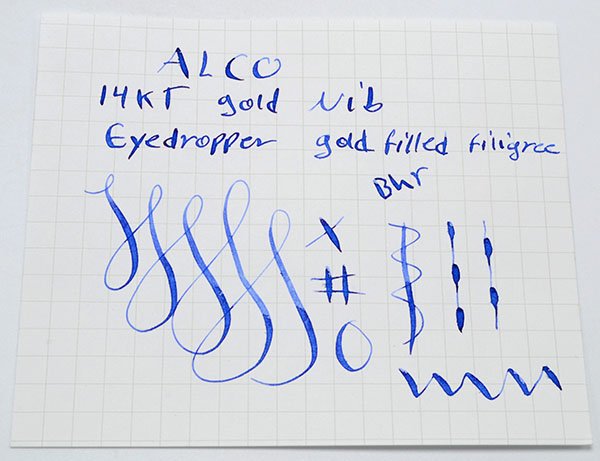 ALCO
14KT gold Nib
Eyedropper gold filled filigree
BHR
X
#
O